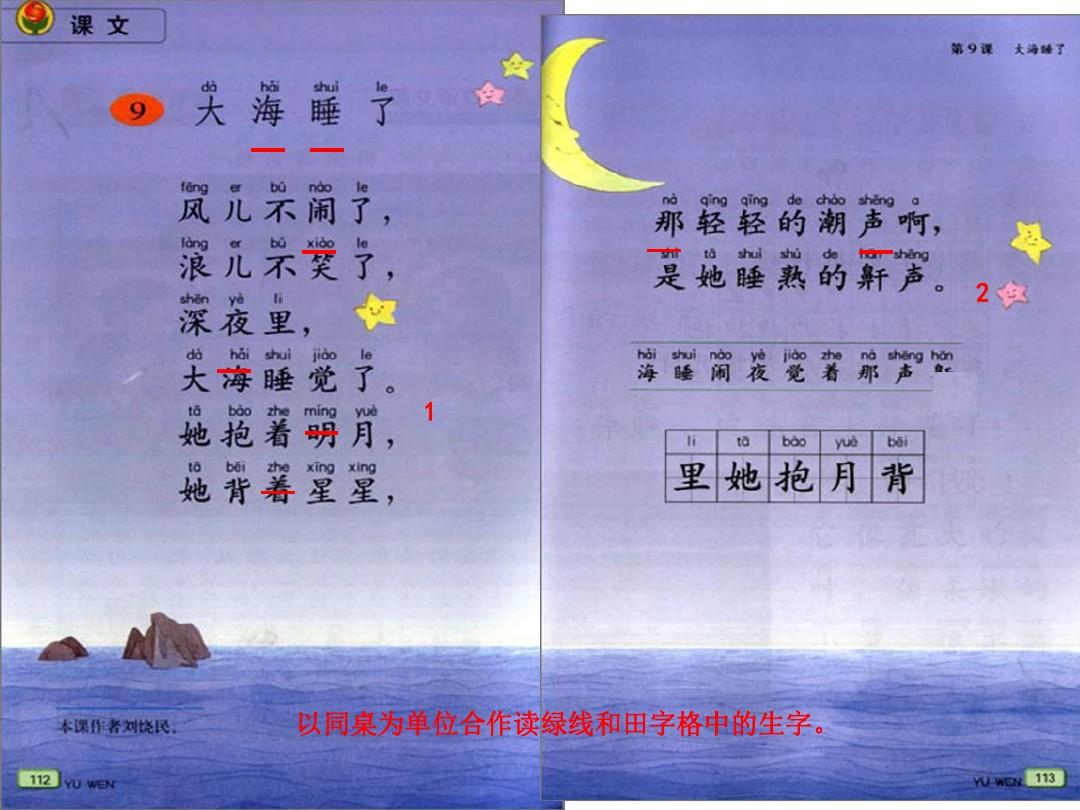 课文
9
dà hǎi shuì le
大海睡了
fēng er bú nào le
风儿不闹了，
làng er bú xiào le
浪儿不笑了，
shēn yè li
深夜里，
dà hǎi shuì jiào le
大海睡觉了。
tā bào zhe míng yuè
她抱着明月，
1
tā bēi zhe xīng xing
她背着星星，
本课作者刘饶民。
112
YU WEN
第9课 大海睡了
nà qīng qīng de cháo shēng a
那轻轻的潮声啊，
shì tā shuì shú de hān shēng
是她睡熟的鼾声。
2
hǎi shuì nào yè jiào zhe nà shēng hān
海睡闹夜觉着那声
li tā bào yuè bēi
里她抱月背
以同桌为单位合作读绿线和田字格中的生字。
YU WEN
113